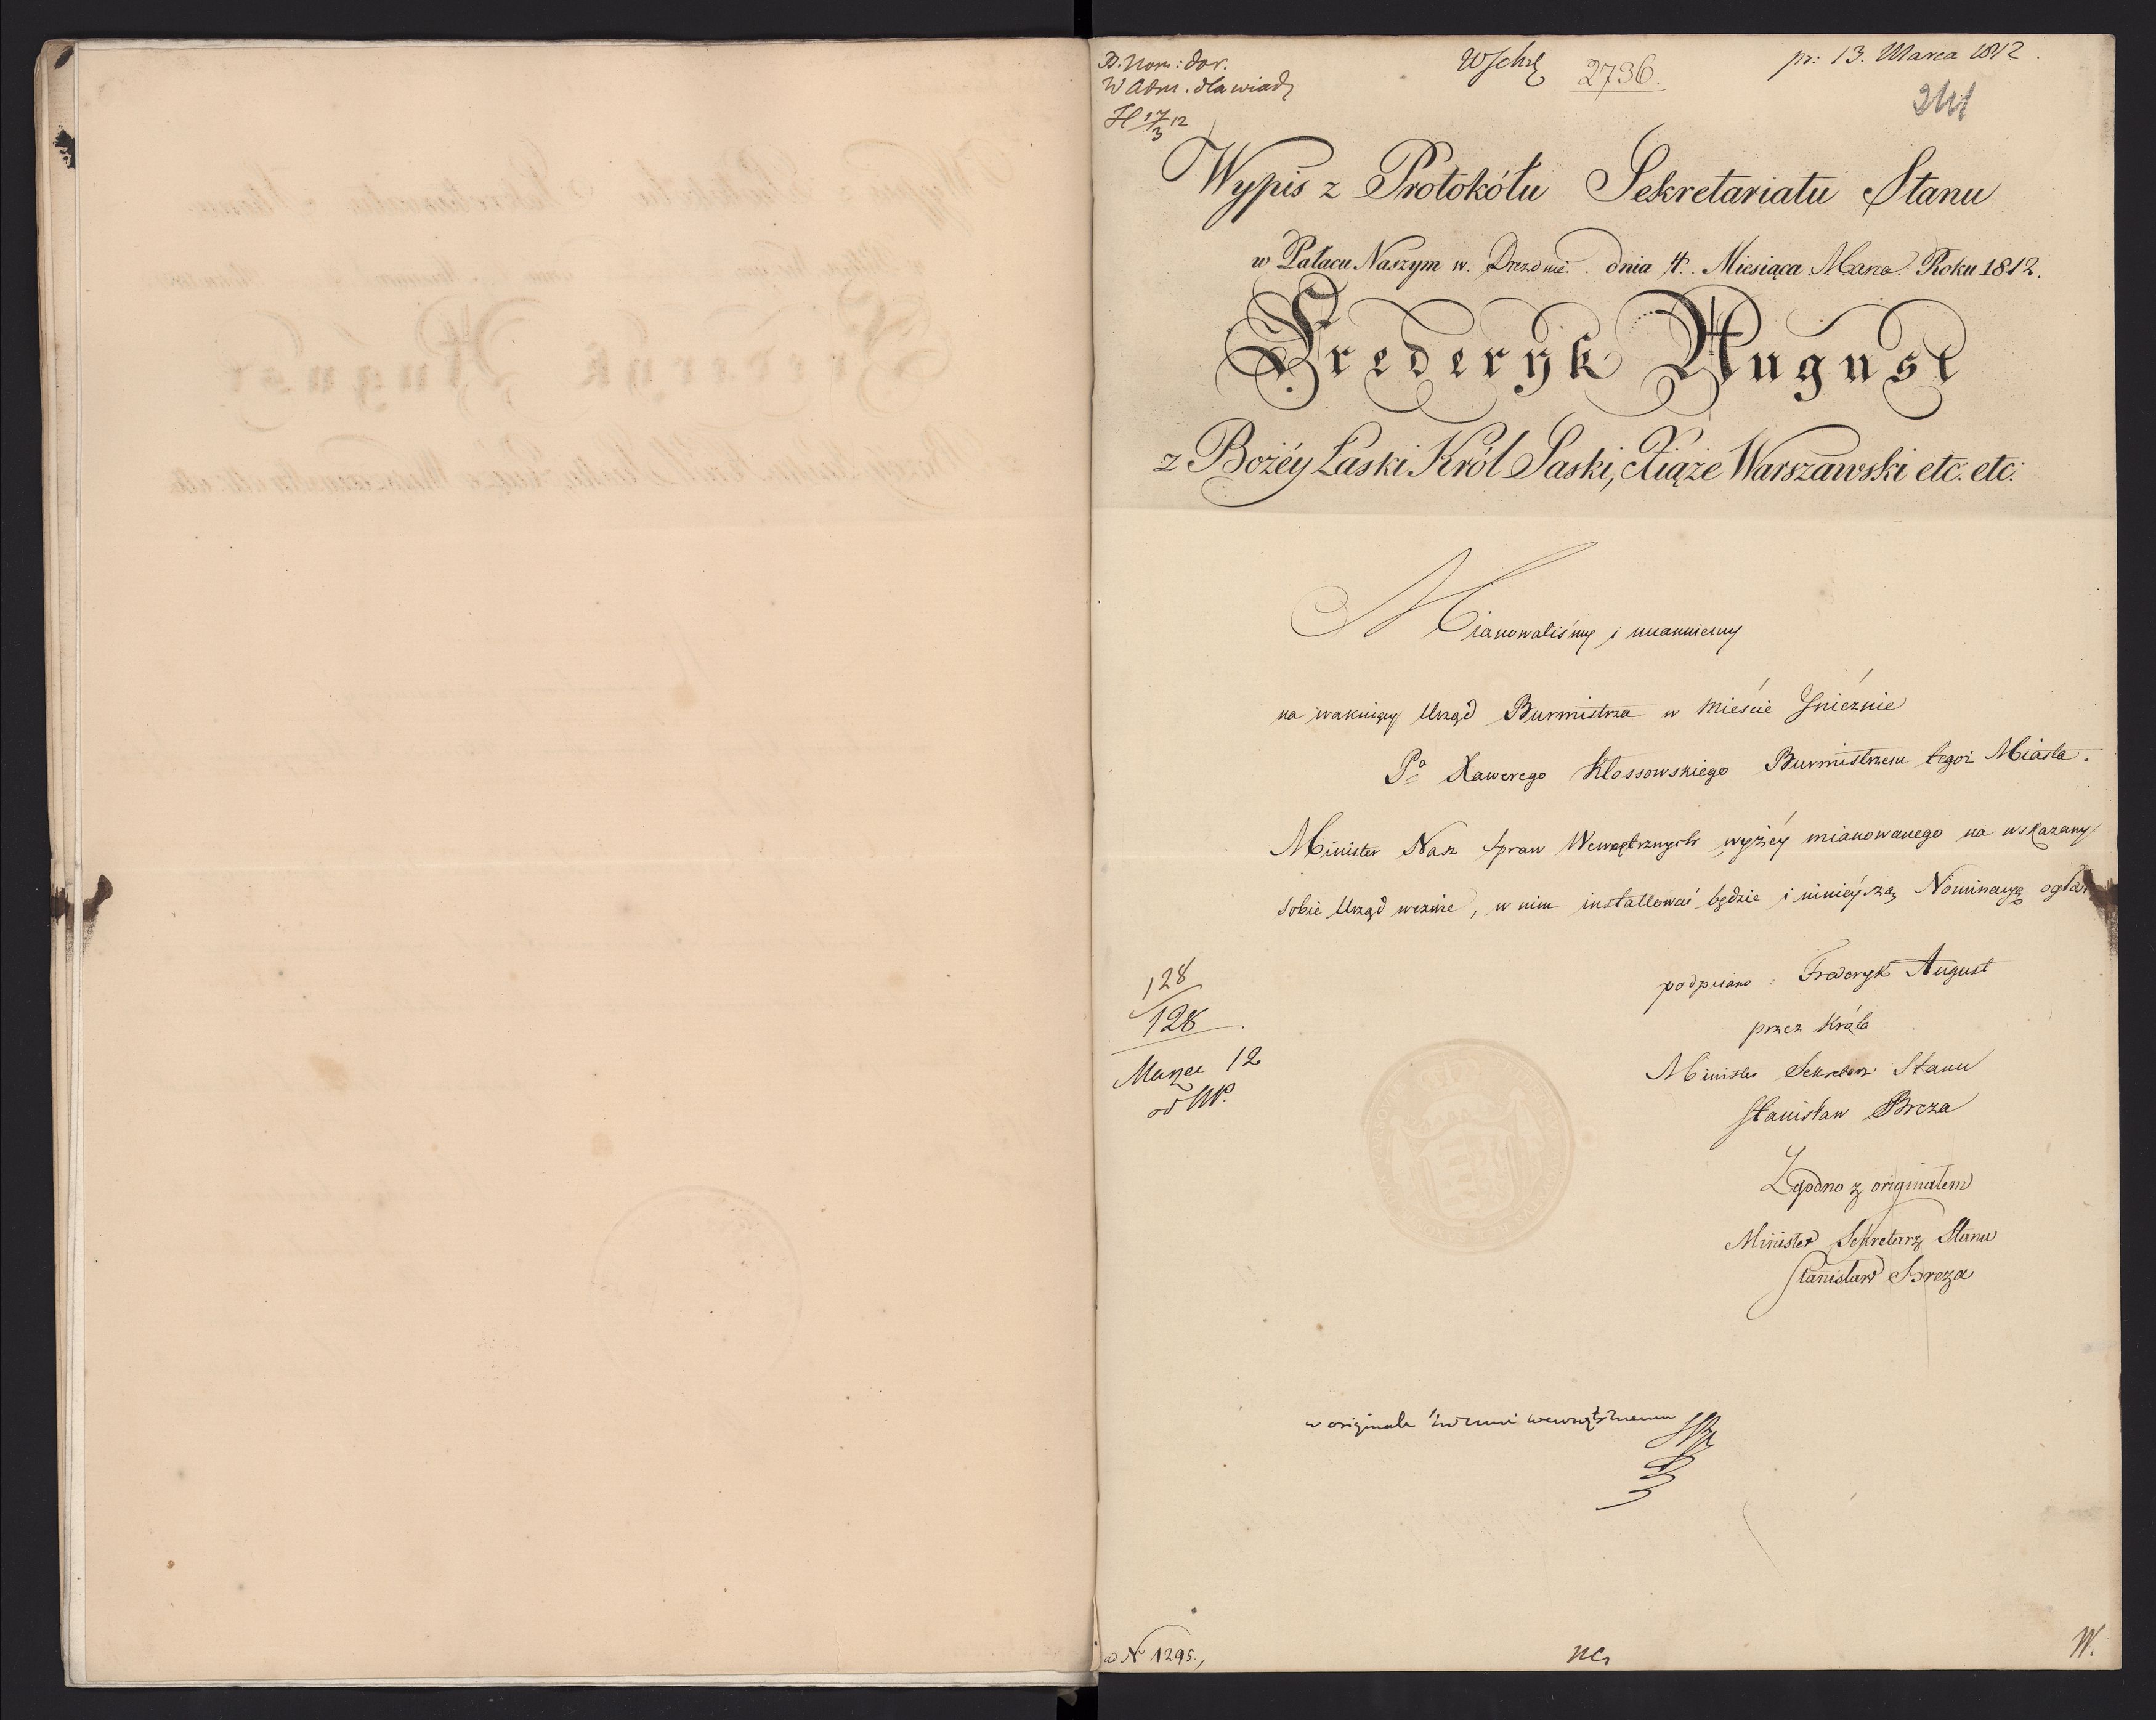 B. Nom: dor.
W Adm. dla wiad
H 17/3 12
2736.
pr: 13. Marca 1812.
Wypis z Protokółu Sekretariatu Stanu
w Pałacu Naszym w Dreznie dnia 4. Miesiąca Marca Roku 1812.
Frederyk August
z Bożéy Łaski Król Saski, Xiąże Warszawski etc. etc:
Mianowaliśmy i mianuiemy
na wakuiący Urząd Burmistrza w Mieście Gnieźnie
Pa Xawerego Kłossowskiego Burmistrzem tegoż Miasta.
Minister Nasz Spraw Wewnętrznych wyżéy mianowanego na wskazany
sobie Urząd wezwie, w nim installować będzie i ninieyszą Nominacyą
podpisano: Frederyk August
przez Króla
Minister Sekretarz Stanu
Stanisław Breza
Zgodno z originałem
Minister Sekretarz Stanu
Stanisław Breza
128
128
Marzec 12
w originale
ad N 1295.
W.